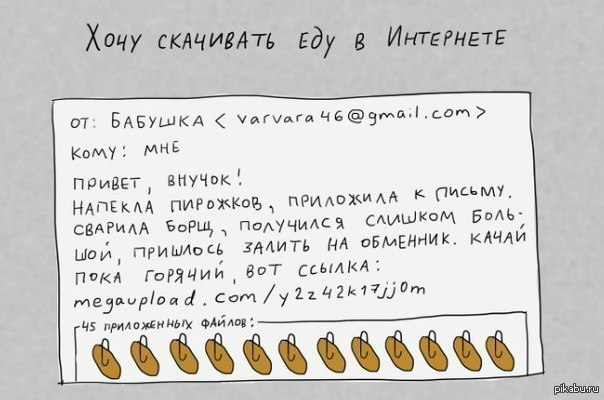 Хочу скачивать еду в Интернете
от: Бабушка < varvara46@gmail.com>
кому: мне
привет, внучок!
напекла пирожков, приложила к письму.
сварила борщ, получился слишком боль-
шой, пришлось залить на обменник. качай
пока горячий, вот ссылка:
megaupload.com/y2z42k17jj0m
45 приложенных файлов:
pikabu.ru